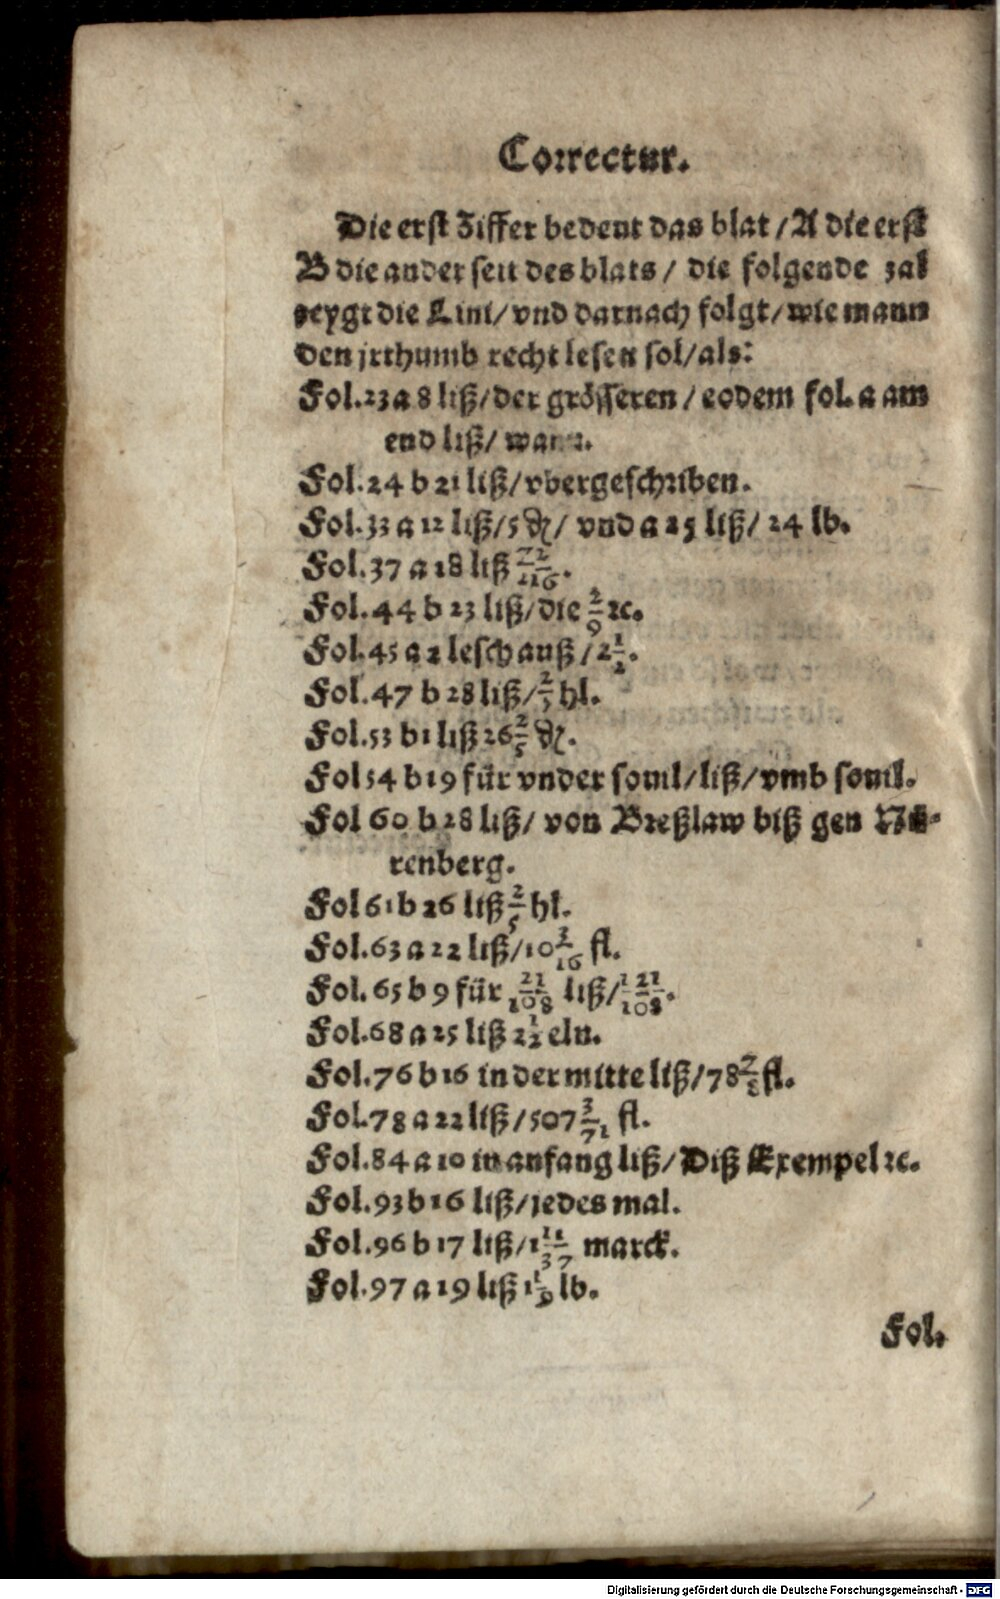 Correctur.
Die erst Ziffer bedeut das blat / A die erst
B die ander seit des blats / die folgende zal
zeygt die Lini / vnd darnach folgt / wie mann
den jrthumb recht lesen sol / als:
Fol. 23 a 8 liß / der grösseren / eodem fol. a am
end liß /
Fol. 24 b 21 liß / vbergeschriben.
Fol. 33 a 12 liß / 5 ₰ / vnd a 25 liß / 24 lb.
Fol. 37 a 18 liß
Fol. 44 b 23 liß / die 2/9 ꝛc.
Fol. 45 a 2 lesch auß / 2 1/2.
Fol. 47 b 28 liß / 2/5 hl.
Fol. 53 b 1 liß 26 2/5 ₰.
Fol 54 b 19 für vnder souil / liß / vmb souil.
Fol 60 b 28 liß / von Breßlaw biß gen Nü-
renberg.
Fol 61 b 26 liß 2/5 hl.
Fol. 63 a 22 liß / 10 3/16 fl.
Fol. 65 b 9 für 21/108 liß / 1 21/108.
Fol. 68 a 25 liß 2 1/2 eln.
Fol. 76 b 16 in der mitte liß / 78 7/8 fl.
Fol. 78 a 22 liß / 507 3/71 fl.
Fol. 84 a 10 in anfang liß / Diß Exempel ꝛc.
Fol. 93 b 16 liß / jedes mal.
Fol. 96 b 17 liß / 1 11/37 marck.
Fol. 97 a 19 liß 1 1/9 lb.
Fol.
Digitalisierung gefördert durch die Deutsche Forschungsgemeinschaft - DFG